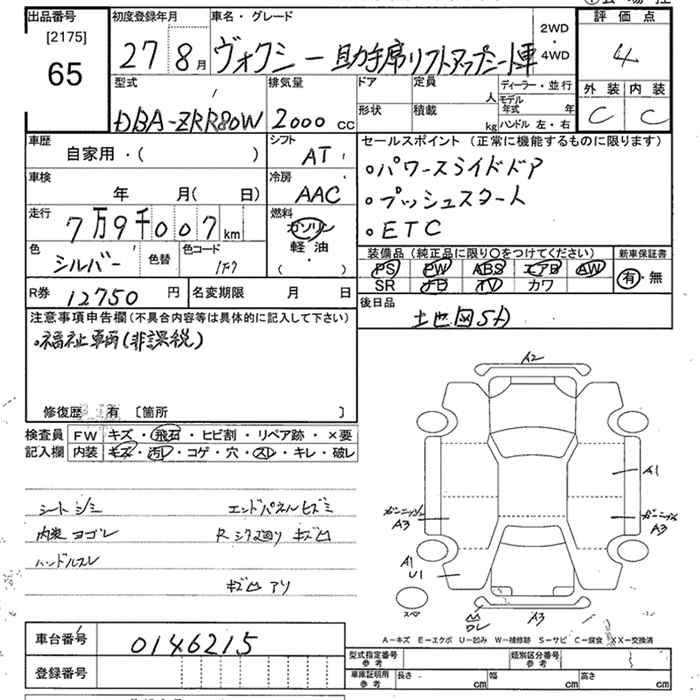 出品番号
[2175]
65
初度登録年月
27 8月
車名・グレード
ヴォクシー助手席リフトアップシート車
2WD
・
4WD
評価点
4
外装 内装
C C
型式
DBA-ZRR80W
排気量
2000 CC
ドア
定員
人
形状
積載
kg
ディーラー・並行
モデル年式 年
ハンドル 左・右
車歴
自家用・( )
シフト
AT
車検
年 月( 日)
冷房
AAC
走行
7万9千007km
燃料
ガソリン
軽油
( ・ )
色
シルバー
色替
色コード
1F7
R券 12750 円
名変期限 月 日
セールスポイント (正常に機能するものに限ります)
。パワースライドドア
。プッシュスタート
。ETC
装備品(純正品に限り〇をつけてください)
PS PW ABS エアB AW
SR ナビ TV カワ
新車保証書
有・無
後日品
土地図SD
注意事項申告欄(不具合内容等は具体的に記入して下さい)
。福祉車輌(非課税)
修復歴 有 〔箇所 〕
検査員
記入欄
FW キズ・飛石・ヒビ割・リペア跡・×要
内装 キズ・汚レ・コゲ・穴・スレ・キレ・破レ
シートシミ
内装ヨゴレ
ハンドルスレ
エンドパネルヒズミ
Rシタ廻り キズ凹
キズ凹アリ
A2
A1
ガーニッシュ
A3
ガーニッシュ
A3
A1
U1
スペア
凹
ワレ
A3
A-キズ E-エクボ U-凹み W-補修跡 S-サビ C-腐食 XX-交換済
車台番号 0146215
登録番号
型式指定番号
参考
類別区分番号
参考
車庫証明用
参考
長さ cm
幅 cm
高さ cm